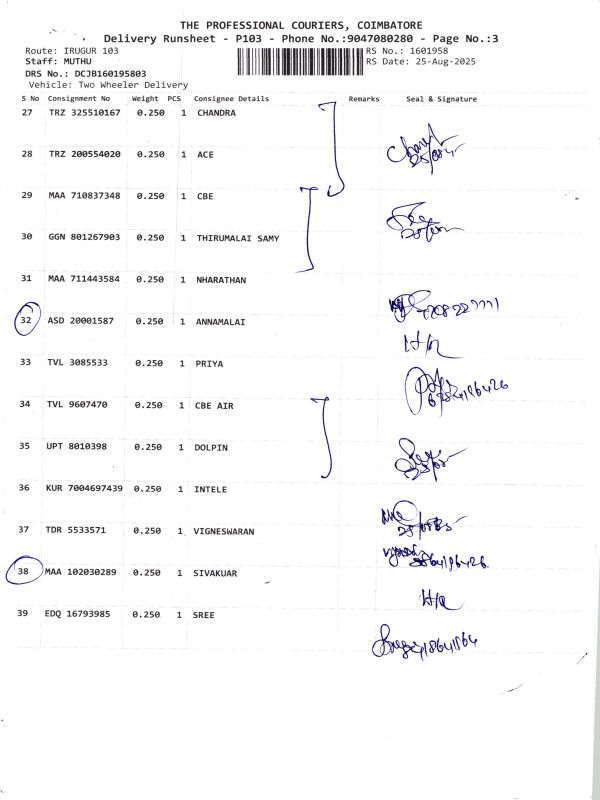 THE PROFESSIONAL COURIERS, COIMBATORE
Delivery Runsheet - P103 - Phone No.:9047080280 - Page No.:3
Route: IRUGUR 103 RS No.: 1601958
Staff: MUTHU RS Date: 25-Aug-2025
DRS No.: DCJB160195803
Vehicle: Two Wheeler Delivery
S No Consignment No Weight PCS Consignee Details Remarks Seal & Signature
27 TRZ 325510167 0.250 1 CHANDRA
28 TRZ 200554020 0.250 1 ACE
29 MAA 710837348 0.250 1 CBE
30 GGN 801267903 0.250 1 THIRUMALAI SAMY
31 MAA 711443584 0.250 1 NHARATHAN
32 ASD 20001587 0.250 1 ANNAMALAI
33 TVL 3085533 0.250 1 PRIYA
34 TVL 9607470 0.250 1 CBE AIR
35 UPT 8010398 0.250 1 DOLPIN
36 KUR 7004697439 0.250 1 INTELE
37 TDR 5533571 0.250 1 VIGNESWARAN
38 MAA 102030289 0.250 1 SIVAKUAR
39 EDQ 16793985 0.250 1 SREE